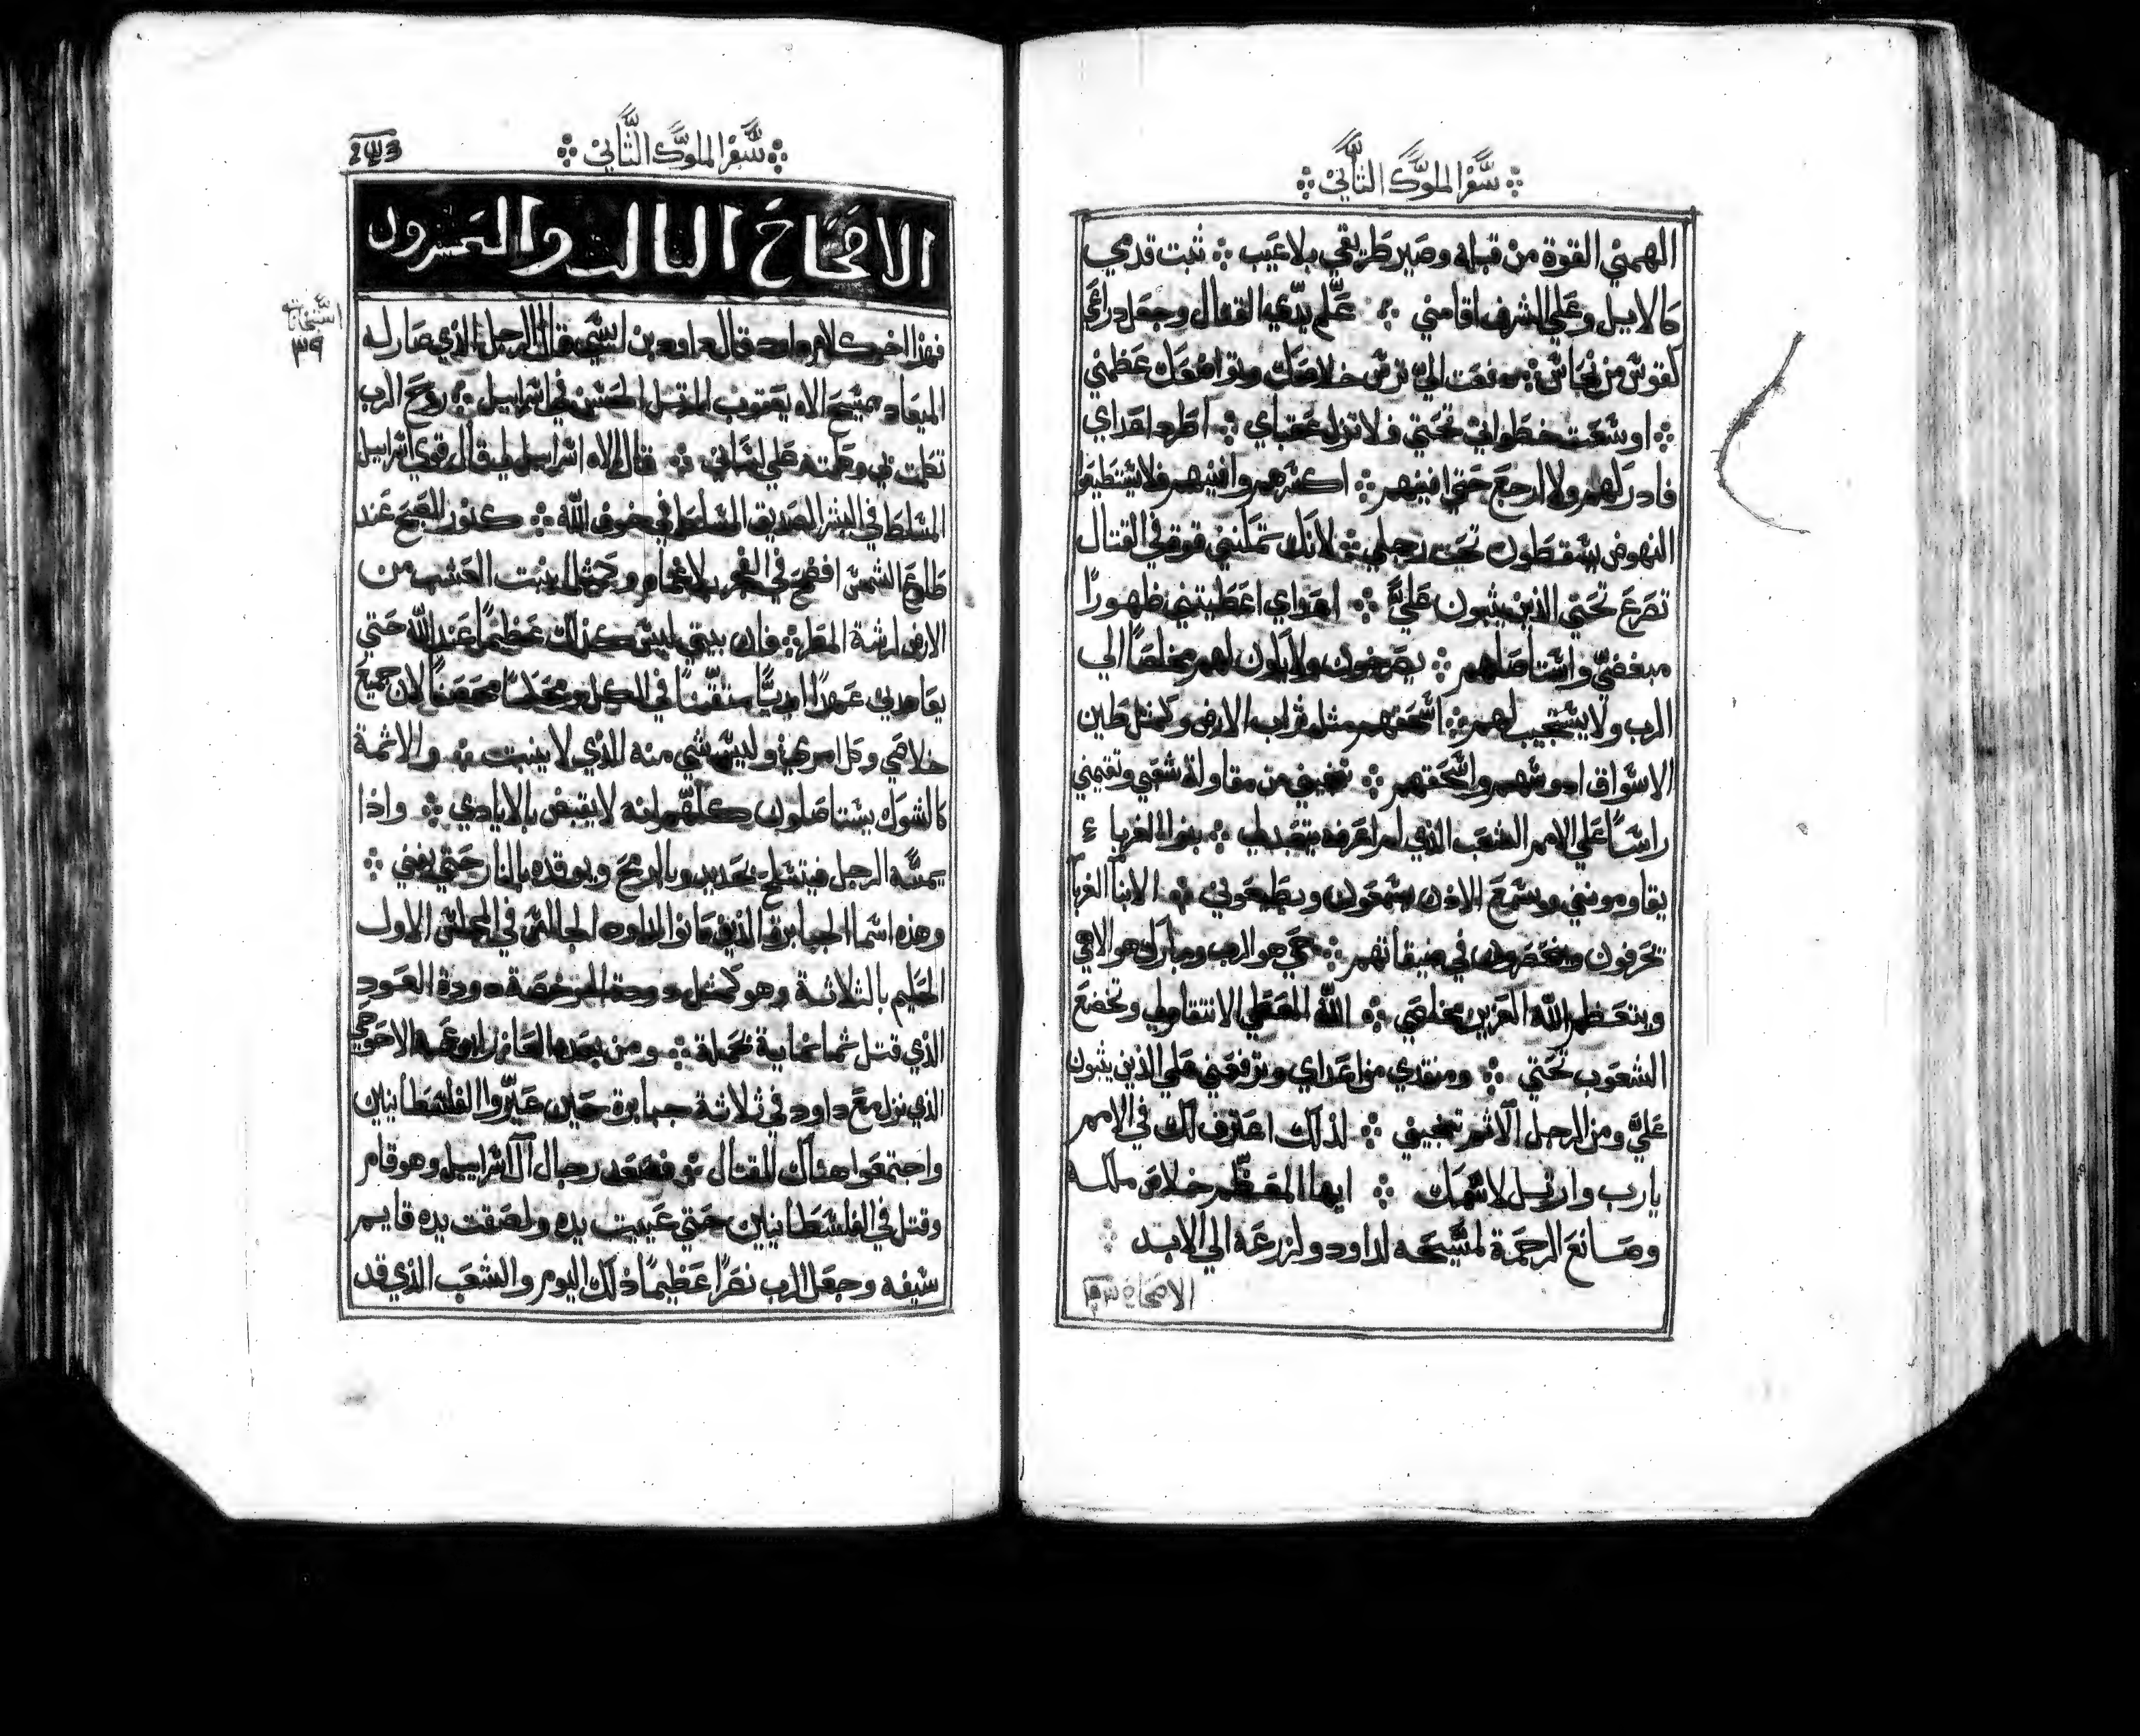 سفر الملوك الثاني
الهمني القوة من قبله وصير طريقي بلا عيب ثبت قدمي
كالايل وعلي الشرف اقامني علم يدي القتال وجعل دراعي
كقوس من نحاس دفعت الي ترس خلاصك وتواضعك عظمني
اوسعت خطواتي تحتي فلا تزل عقباي اطرد اعداي
فادركهم ولا ارجع حتي افنيهم اكسرهم وافنيهم فلا يستطيعوا
النهوض يسقطون تحت رجلي لانك تملني قوة في القتال
تصرع تحتي الذين يثبون علي اعداي اعطيتني ظهورًا
مبغضي واستاصلهم يصرخون ولا يكون لهم مخلصًا الي
الرب ولا يستجيب لهم اسحقهم مثل تراب الارض وكمثل طين
الاسواق ادوسهم واسحقهم تنجيني من مقاولة شعبي وتقيمني
راسًا علي الامم الشعب الذي لم اعرفه يتعبد لي بنوا الغرباء
يقاومونني وبسمع الاذن يسمعون ويطيعوني الابنا الغربا
تحرفون في ضيقاتهم حي هو الرب ومبارك هو الاهي
ويتعظم الله العزيز مخلصي الله المعطي الانتقام لي وتخضع
الشعوب تحتي ومنقدي من اعداي وترفعني علي الذين يثبون
علي ومن الرجل الاثم تنجيني لذلك اعترف لك في الامم
يا رب وارتل لاسمك ايها المعظم خلاص ملكه
وصانع الرحمة لمسيحه لداود ولزرعه الي الابد
الاصحاح ٢٣
سفر الملوك الثاني
الاصحاح الثالث والعشرون
فهذا اخر كلام داود قال داود بن يسي قال الرجل الذي صار له
الميعاد مسيح الاه يعقوب المرتل الحسن في اسراييل روح الرب
تكلمت في وكلمته علي لساني قال الاه اسراييل لي قال قوي اسراييل
المسلط في البشر الصديق المسلط في خوف الله كنور الصبح عند
طلوع الشمس اضحي في الفجر بلا غمام وكمثل ينبت العشب من
الارض لرشة المطر فان بيتي ليس كذلك عظيمًا عند الله حتي
يعاهدني عهدًا ابديًا متقنًا في الكل محصنًا لان جميع
خلاصي وكل مسرتي وليس شي منه الذي لا ينبت والاثمة
كالشوك يستاصلون كلهم لانه لا يقبض بالايادي واذا
يمسه الرجل فيتسلح بحديد وبالرمح ويوقده بالنار حتي يفني
وهذه اسما الجبابرة الذين كانوا لداود الجالس في المجلس الاول
الحليم بالثلاثة وهو كمثل دودة المرخصة دودة العود
الذي قتل ثمانماية بحملة ومن بعده العازر ابن عمه الاحوحي
الذي نزل مع داود في ثلاثة جبابرة حين عيروا الفلسطانيين
واجتمعوا هناك للقتال فصعد رجال آل اسراييل وهو قام
وقتل في الفلسطانيين حتي عييت يده ولصقت يده قايم
سيفه وجعل الرب نصرًا عظيمًا ذلك اليوم والشعب الذي قد